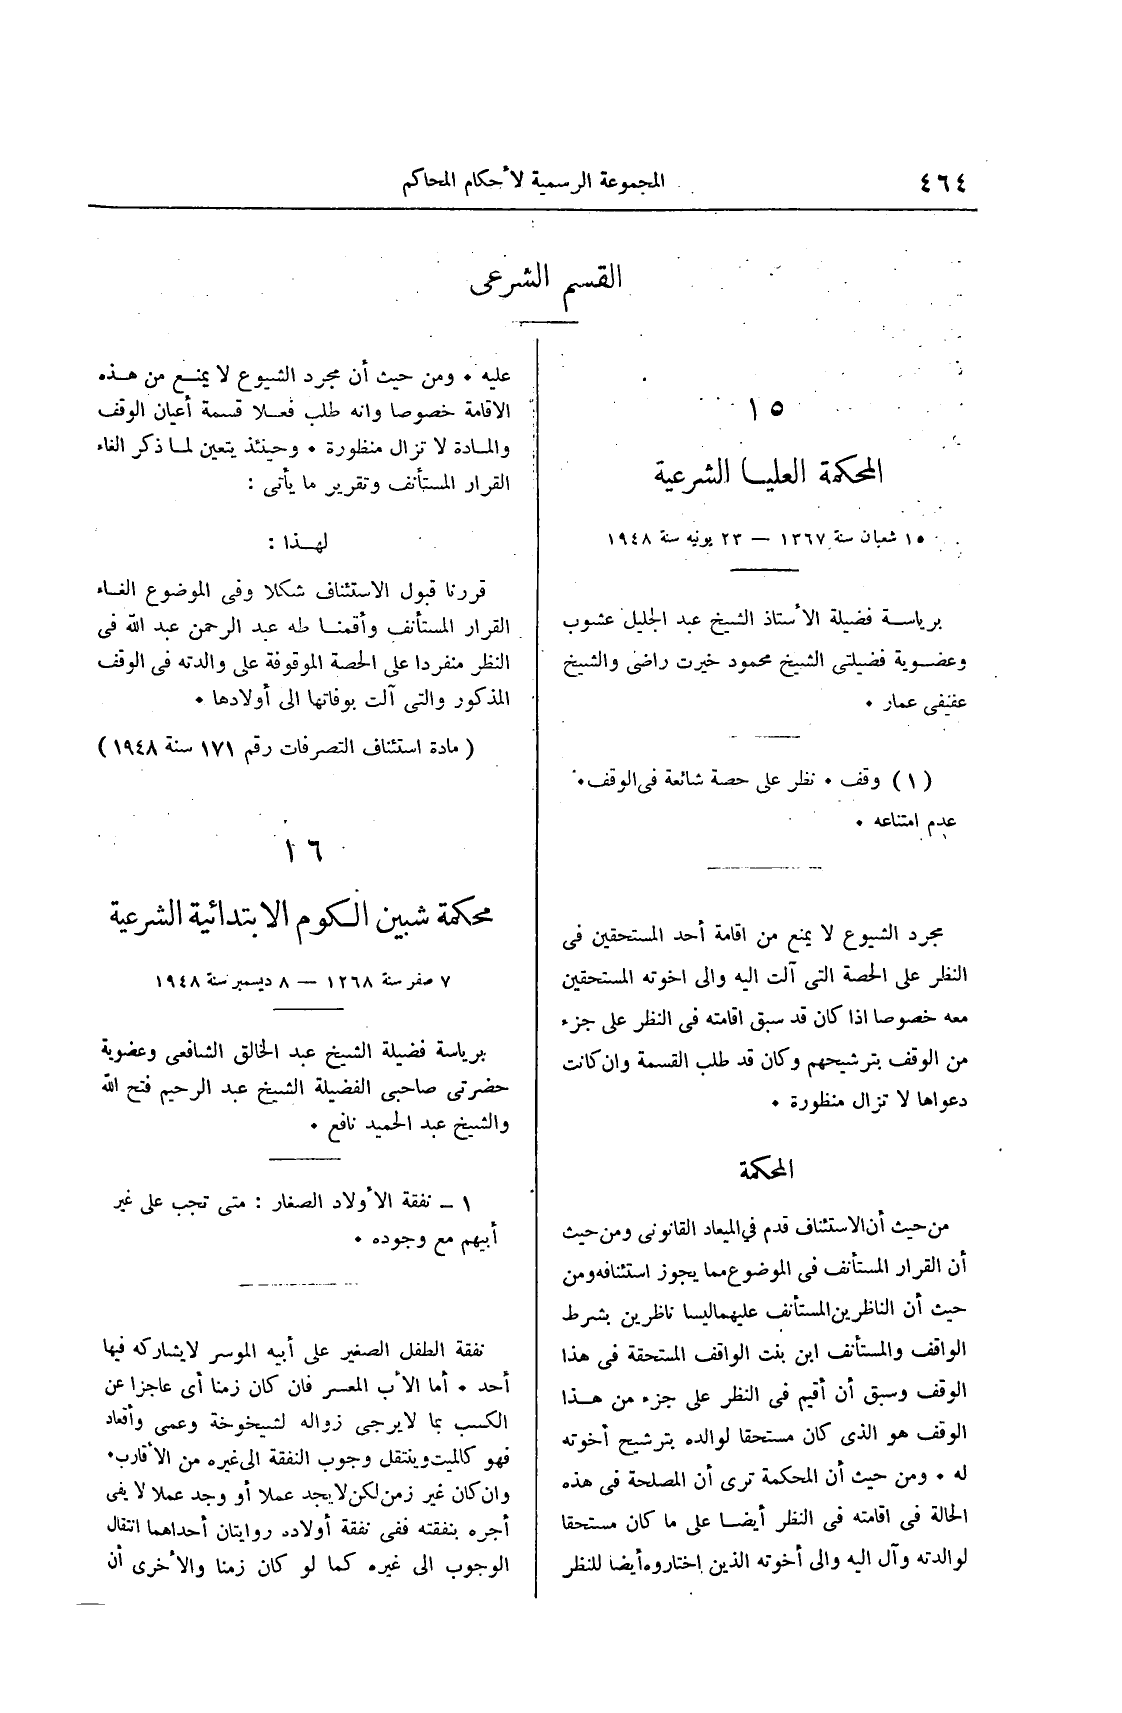 ٤٦٤
المجموعة الرسمية لأحكام المحاكم
القسم الشرعى
١٥
المحكمة العليا الشرعية
١٥ شعبان سنة ١٣٦٧ — ٢٣ يونيه سنة ١٩٤٨
برياسة فضيلة الأستاذ الشيخ عبد الجليل عشوب
وعضوية فضيلتى الشيخ محمود خيرت راضى والشيخ
عفيفى عمار ٠
(١) وقف ٠ نظر على حصة شائعة فى الوقف ٠
عدم امتناعه ٠
مجرد الشيوع لا يمنع من اقامة أحد المستحقين فى
النظر على الحصة التى آلت اليه والى اخوته المستحقين
معه خصوصا اذا كان قد سبق اقامته فى النظر على جزء
من الوقف بترشيحهم وكان قد طلب القسمة وان كانت
دعواها لا تزال منظورة ٠
المحكمة
من حيث أن الاستئناف قدم فى الميعاد القانونى ومن حيث
أن القرار المستأنف فى الموضوع مما يجوز استئنافه ومن
حيث أن الناظرين المستأنف عليهما ليسا ناظرين بشرط
الواقف والمستأنف ابن بنت الواقف المستحقة فى هذا
الوقف وسبق أن أقيم فى النظر على جزء من هذا
الوقف هو الذى كان مستحقا لوالده بترشيح أخوته
له ٠ ومن حيث أن المحكمة ترى أن المصلحة فى هذه
الحالة فى اقامته فى النظر أيضا على ما كان مستحقا
لوالدته وآل اليه والى أخوته الذين اختاروه أيضا للنظر
عليه ٠ ومن حيث أن مجرد الشيوع لا يمنع من هذه
الاقامة خصوصا وانه طلب فعلا قسمة أعيان الوقف
والمادة لا تزال منظورة ٠ وحينئذ يتعين لما ذكر الغاء
القرار المستأنف وتقرير ما يأتى :
لهذا :
قررنا قبول الاستئناف شكلا وفى الموضوع الغاء
القرار المستأنف وأقمنا طه عبد الرحمن عبد الله فى
النظر منفردا على الحصة الموقوفة على والدته فى الوقف
المذكور والتى آلت بوفاتها الى أولادها ٠
( مادة استئناف التصرفات رقم ١٧١ سنة ١٩٤٨ )
١٦
محكمة شبين الكوم الابتدائية الشرعية
٧ صفر سنة ١٢٦٨ — ٨ ديسمبر سنة ١٩٤٨
برياسة فضيلة الشيخ عبد الخالق الشافعى وعضوية
حضرتى صاحبى الفضيلة الشيخ عبد الرحيم فتح الله
والشيخ عبد الحميد نافع ٠
١ - نفقة الأولاد الصغار : متى تجب على غير
أبيهم مع وجوده ٠
نفقة الطفل الصغير على أبيه الموسر لا يشاركه فيها
أحد ٠ أما الأب المعسر فان كان زمنا أى عاجزا عن
الكسب بما لا يرجى زواله لشيخوخة وعمى وأقعاد
فهو كالميت وينتقل وجوب النفقة الى غيره من الأقارب ٠
وان كان غير زمن لكن لا يجد عملا أو وجد عملا لا يفى
أجره بنفقته ففى نفقة أولاده روايتان أحداهما انتقال
الوجوب الى غيره كما لو كان زمنا والأخرى أن